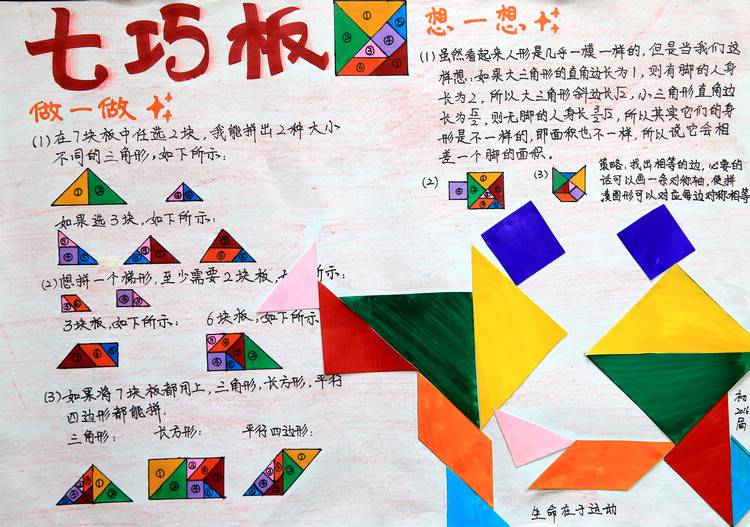 七巧板
做一做
(1) 在7块板中任选2块，我能拼出2种大小
不同的三角形，如下所示：
如果选3块，如下所示：
(2) 想拼一个梯形，至少需要2块板，示：
3块板，如下所示：
6块板，如下所示
(3) 如果将7块板都用上，三角形，长方形，平行
四边形都能拼。
三角形：
长方形：
平行四边形：
想一想
(1) 虽然看起来人形是几乎一模一样的，但是当我们这
样想：如果大三角形的直角边长为1，则有脚的人身
长为2，所以大三角形斜边长√2，小三角形直角边
长为√2/2，则无脚的人身长3/2√2，所以其实它们的身
形是不一样的，即面积也不一样，所以说它会相
差一个脚的面积。
(2)
(3)
策略：找出相等的边，必要的
话可以画一条对称轴，使拼
凑图形可以对应每边对称相等
初
2016
届
生命在于运动